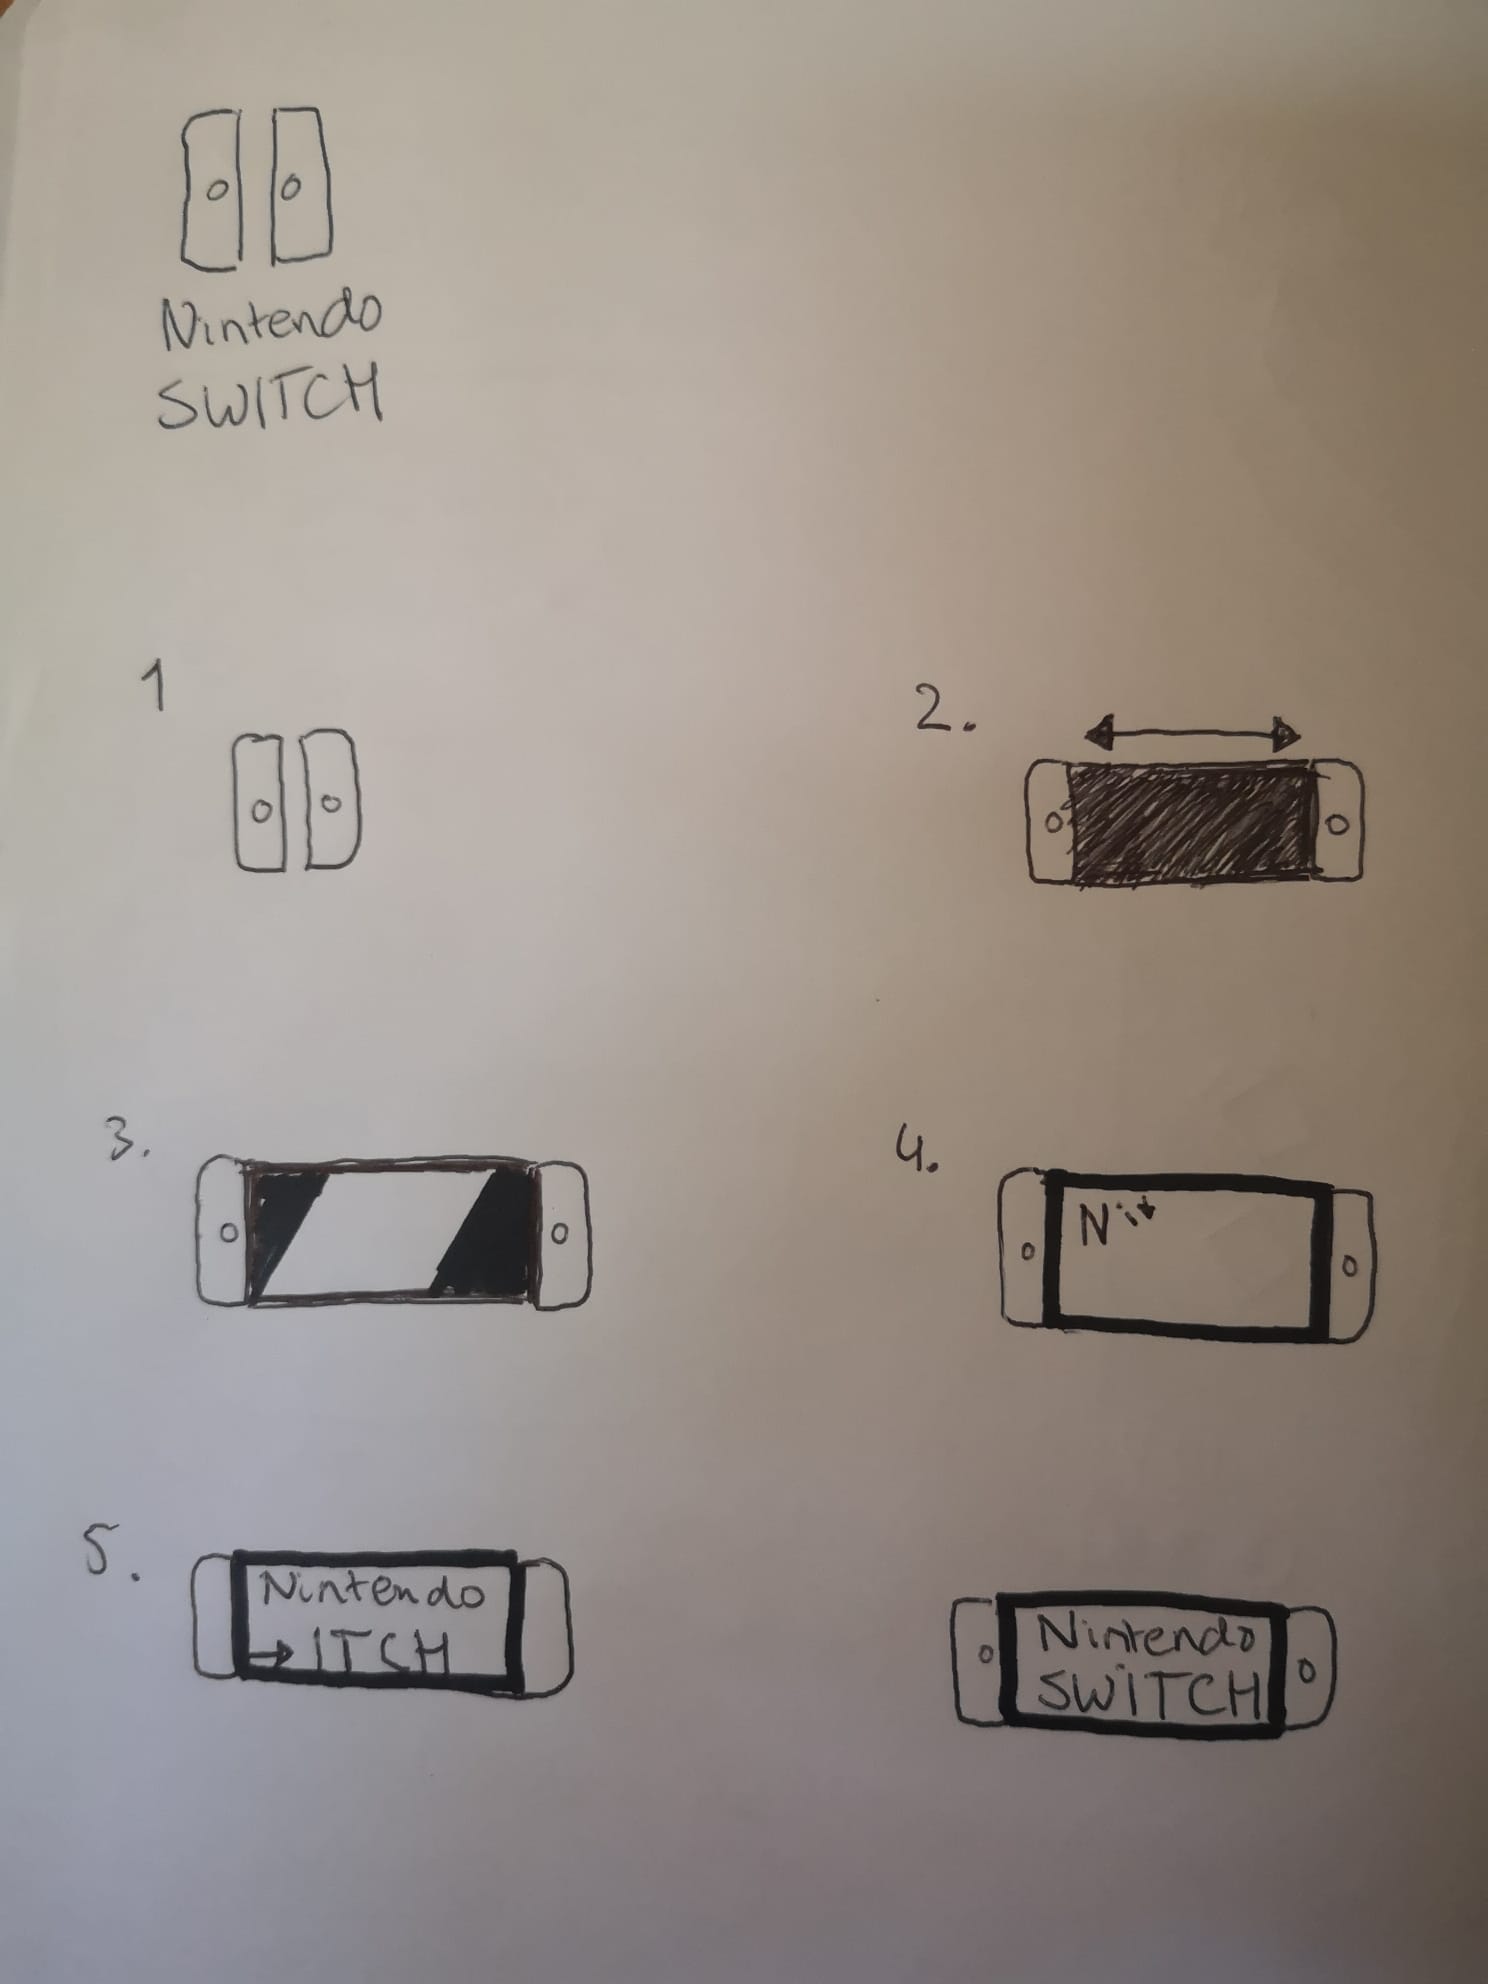 Nintendo
SWITCH
1
2.
3.
4.
Nit
5.
Nintendo
ITCH
Nintendo
SWITCH